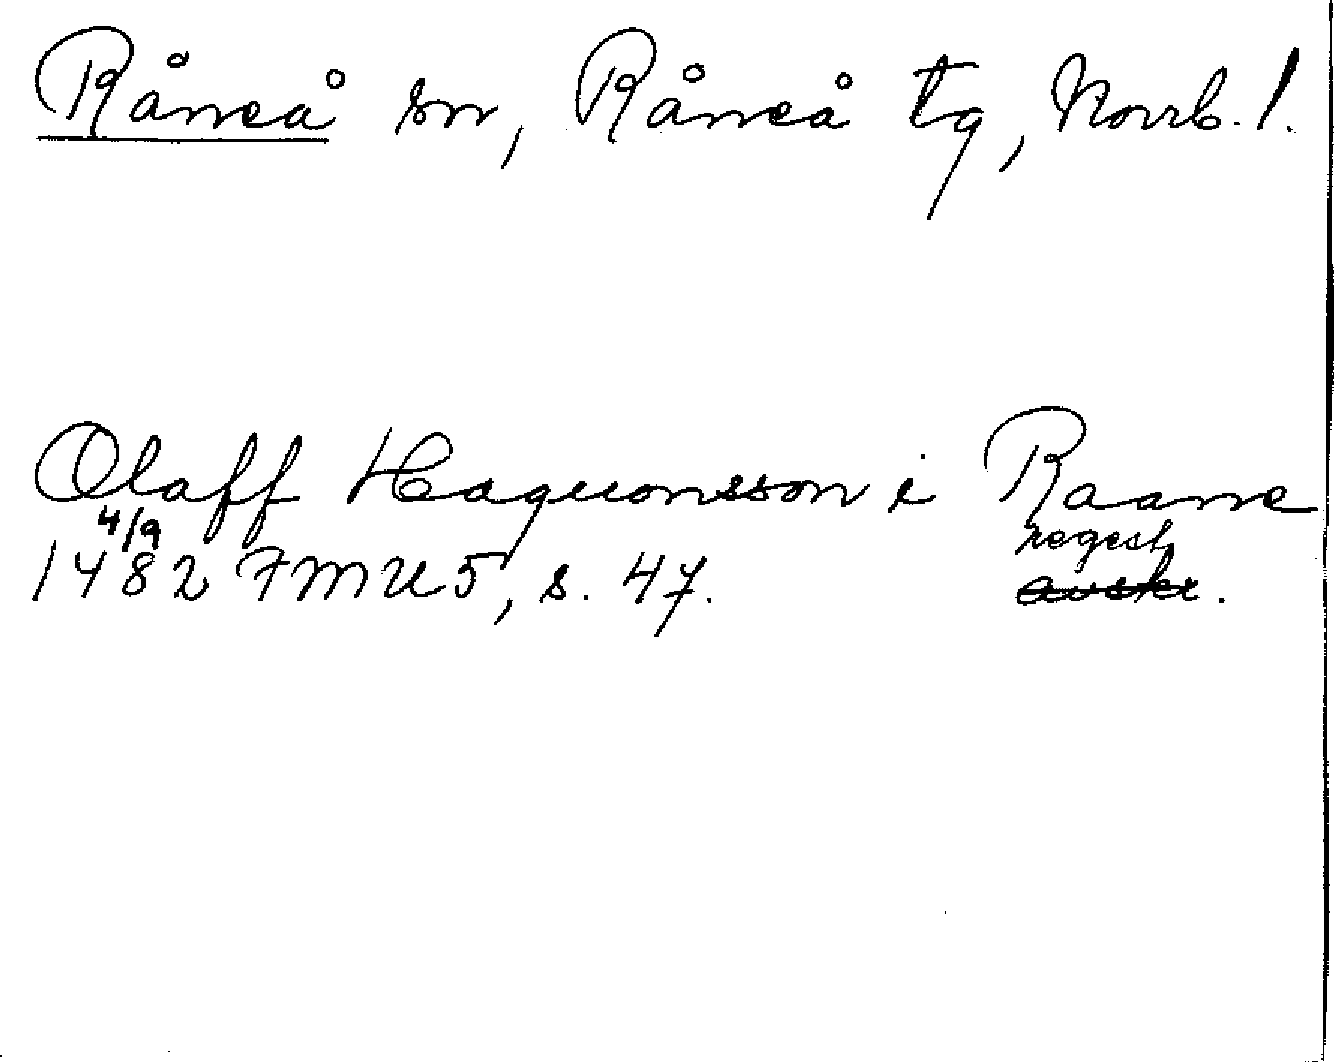 Råneå sn, Råneå tg, Norrb. l.
Olaff Haquonsson i Raane
4/9 regest
1482 FMU 5, s. 47. avskr.